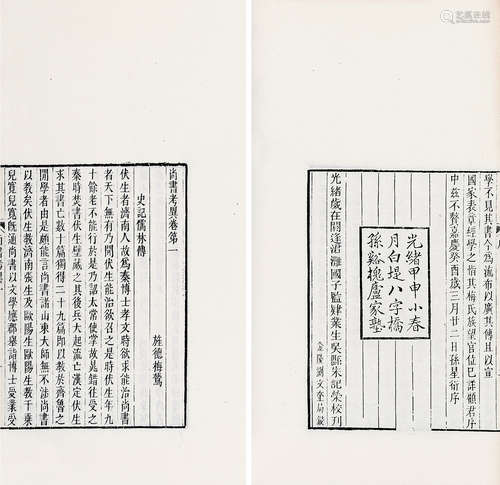 學不見其書今為流布以廣其傳且以宣
國家表章經學之恉其梅氏族望官位已詳顧君序
中茲不贅嘉慶癸酉歲三月廿二日孫星衍序
光緒甲申小春
月白堤八字橋
孫谿槐廬家塾
光緒歲在閼逢涒灘國子監肄業生吳縣朱記榮校刊
金陵劉文奎局
尚書考異卷第一
旌德梅鷟
史記儒林傳
伏生者濟南人故為秦博士孝文時欲求能治尚書
者天下無有乃聞伏生能治欲召之是時伏生年九
十餘老不能行於是乃詔太常使掌故晁錯往受之
秦時焚書伏生壁藏之其後兵大起流亡漢定伏生
求其書亡數十篇獨得二十九篇即以教於齊魯之
間學者由是頗能言尚書諸山東大師無不涉尚書
以教矣伏生教濟南張生及歐陽生歐陽生教千乗
兒寬兒寬既通尚書以文學應郡舉詣博士受業受